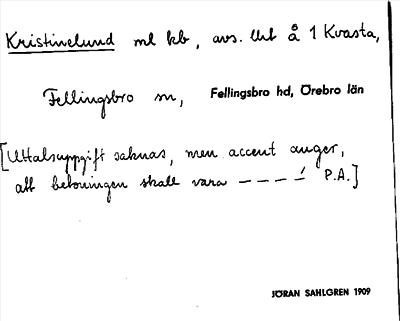 Kristinelund ml kb, avs. lht å 1 Kvasta,
Fellingsbro sn, Fellingsbro hd, Örebro län
[Uttalsuppgift saknas, men accent anger,
att betoningen skall vara – – – –́ P.A.]
JÖRAN SAHLGREN 1909